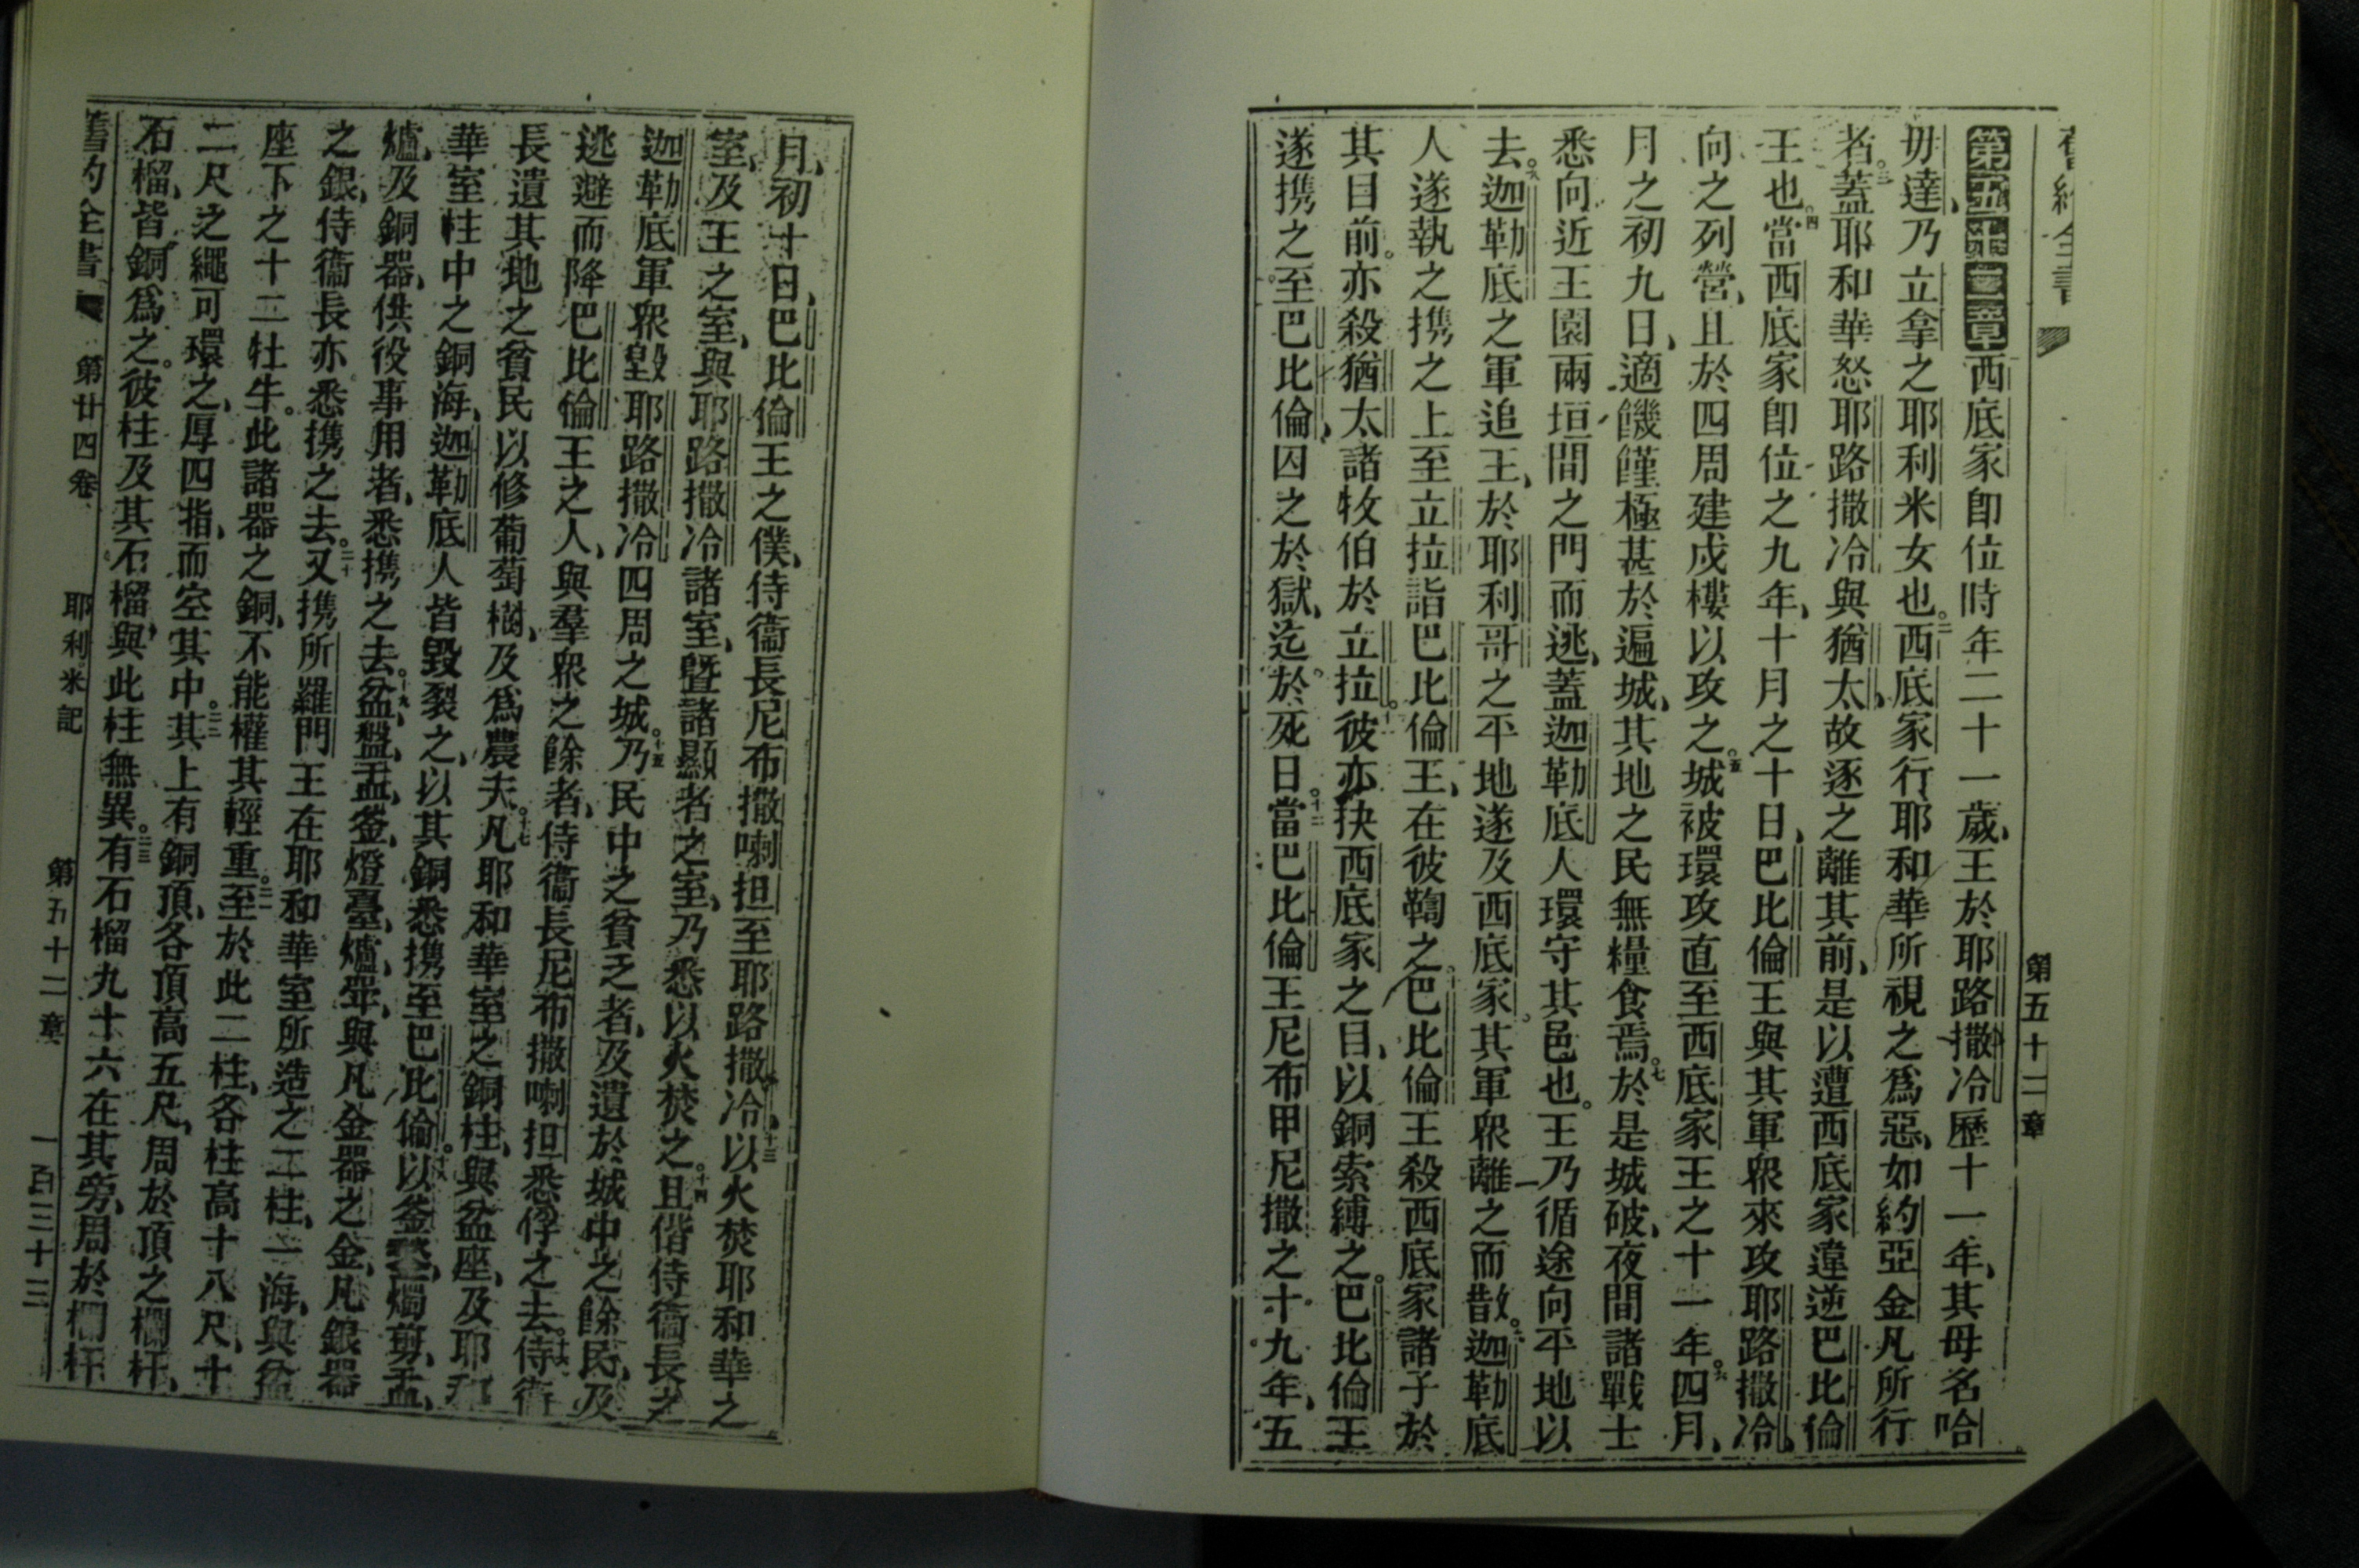 舊約全書
第五十二章
第五十二章西底家卽位時年二十一歲、王於耶路撒冷歷十一年、其母名哈
毋達、乃立拿之耶利米女也。二西底家行耶和華所視之爲惡、如約亞金凡所行
者。三蓋耶和華怒耶路撒冷與猶太、故逐之離其前、是以遭西底家違逆巴比倫
王也。四當西底家卽位之九年、十月之十日、巴比倫王與其軍衆來攻耶路撒冷、
向之列營、且於四周建戍樓以攻之。五城被環攻直至西底家王之十一年。六四月、
月之初九日、適饑饉極甚於遍城、其地之民無糧食焉。七於是城破、夜間諸戰士
悉向近王園兩垣間之門而逃、蓋迦勒底人環守其邑也。王乃循途向平地以
去。八迦勒底之軍追王、於耶利哥之平地遂及西底家。其軍衆離之而散。九迦勒底
人遂執之携之上至立拉詣巴比倫王、在彼鞫之。十巴比倫王殺西底家諸子於
其目前。亦殺猶太諸牧伯於立拉。十一彼亦抉西底家之目、以銅索縛之。巴比倫王
遂携之至巴比倫、囚之於獄、迄於死日。十二當巴比倫王尼布甲尼撒之十九年、五
月、初十日、巴比倫王之僕、侍衞長尼布撒喇担至耶路撒冷、十三以火焚耶和華之
室、及王之室、與耶路撒冷諸室、曁諸顯者之室、乃悉以火焚之。十四且偕侍衞長之
迦勒底軍衆毀耶路撒冷四周之城。十五乃民中之貧乏者、及遺於城中之餘民、及
逃避而降巴比倫王之人、與羣衆之餘者、侍衞長尼布撒喇担悉俘之去。十六侍衞
長遺其地之貧民以修葡萄樹、及爲農夫。十七凡耶和華室之銅柱、與盆座、及耶和
華室柱中之銅海、迦勒底人皆毀裂之、以其銅悉携至巴比倫。十八以釜、燭剪、盂、
爐、及銅器、供役事用者、悉携之去。十九盆、盤、盂、釜、燈臺、爐、斝、與凡金器之金、凡銀器
之銀、侍衞長亦悉携之去。二十又携所羅門王在耶和華室所造之二柱、一海、與盆
座下之十二牡牛。此諸器之銅、不能權其輕重。二一至於此二柱、各柱高十八尺、十
二尺之繩可環之、厚四指、而空其中。二二其上有銅頂、各頂高五尺、周於頂之欄杆、
石榴、皆銅爲之。彼柱及其石榴、與此柱無異。二三有石榴九十六在其旁、周於欄杆
舊約全書
第廿四卷
耶利米記
第五十二章
一百三十三